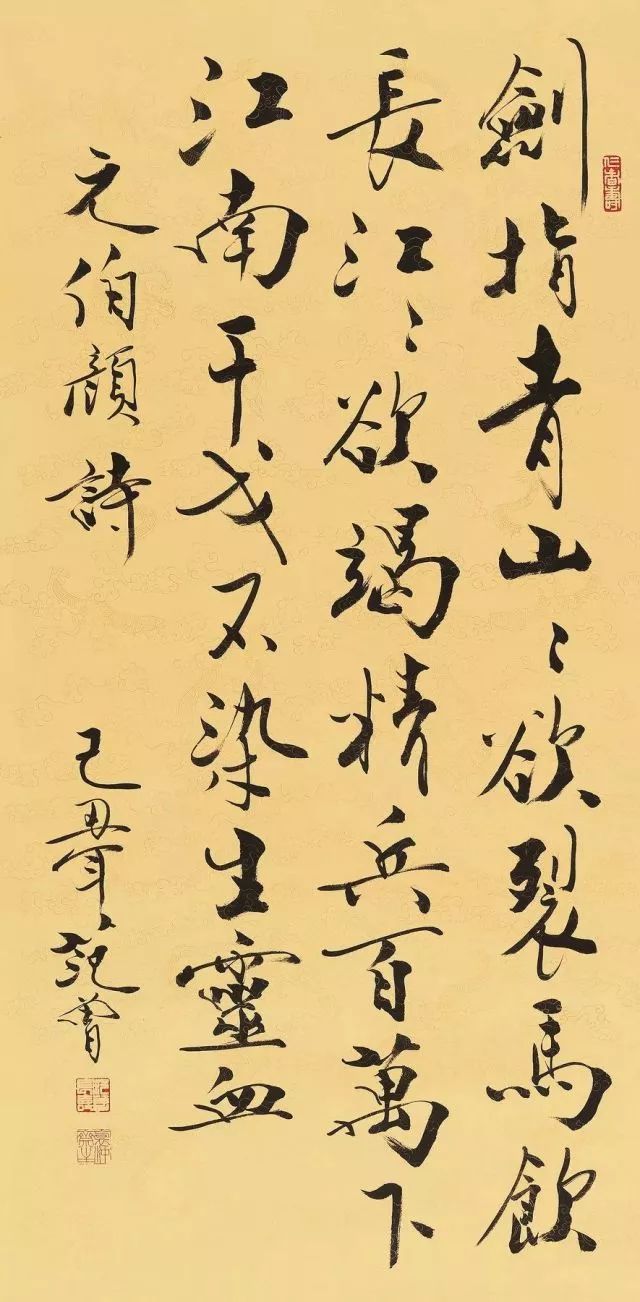 仁者壽
劍指青山〻欲裂馬飲
長江〻欲竭精兵百萬下
江南干戈不染生靈血
元伯顏詩
己丑年范曾